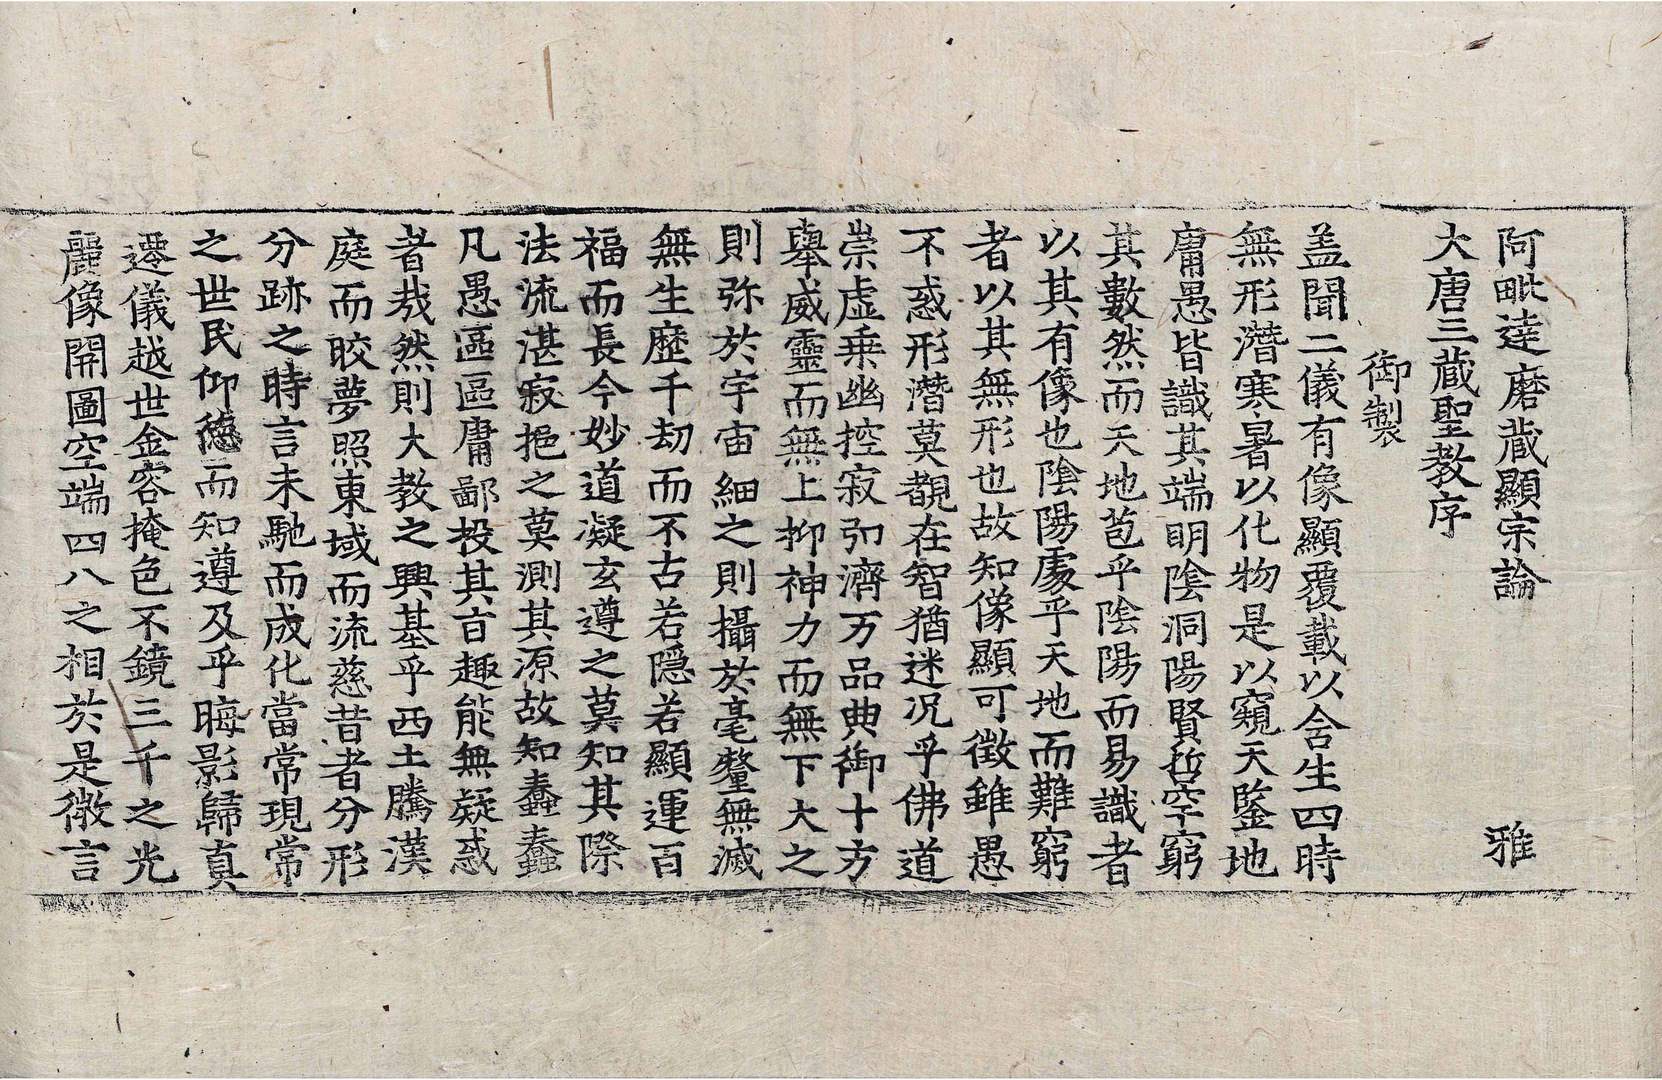 阿毗達磨蔵顯宗論 雅
大唐三蔵聖教序
御製
盖聞二儀有像顯覆載以含生四時
無形潛寒暑以化物是以窺天鑒地
庸愚皆識其端明陰洞陽賢哲罕窮
其數然而天地苞乎陰陽而易識者
以其有像也陰陽處乎天地而難窮
者以其無形也故知像顯可徵雖愚
不惑形潛莫覩在智猶迷況乎佛道
崇虛乗幽控寂弘濟万品典御十方
舉威靈而無上抑神力而無下大之
則弥於宇宙細之則攝於毫釐無滅
無生歷千劫而不古若隠若顯運百
福而長今妙道凝玄遵之莫知其際
法流湛寂挹之莫測其源故知蠢蠢
凡愚區區庸鄙投其旨趣能無疑惑
者㦲然則大教之興基乎西土騰漢
庭而晈夢照東域而流慈昔者分形
分跡之時言未馳而成化當常現常
之世民仰德而知遵及乎晦影歸真
遷儀越世金容掩色不鏡三千之光
麗像開圖空端四八之相於是微言